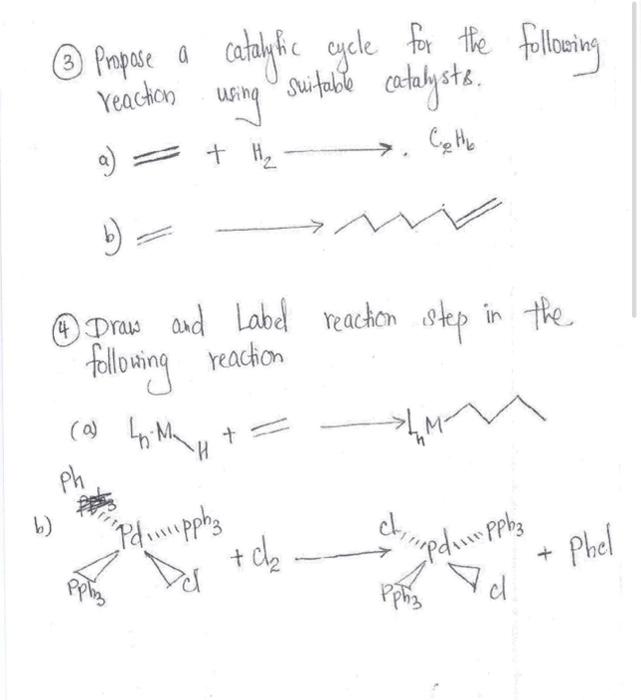 ③ Propose a catalytic cycle for the following
reaction using suitable catalysts.
a) + H₂ ⟶ . C₂H₆
b) ⟶
④ Draw and Label reaction step in the
following reaction
(a) Lₙ-M H + ⟶ LₙM
b) Ph Pd PPh₃ PPh₃ Cl + Cl₂ ⟶ Cl Pd PPh₃ PPh₃ Cl + PhCl